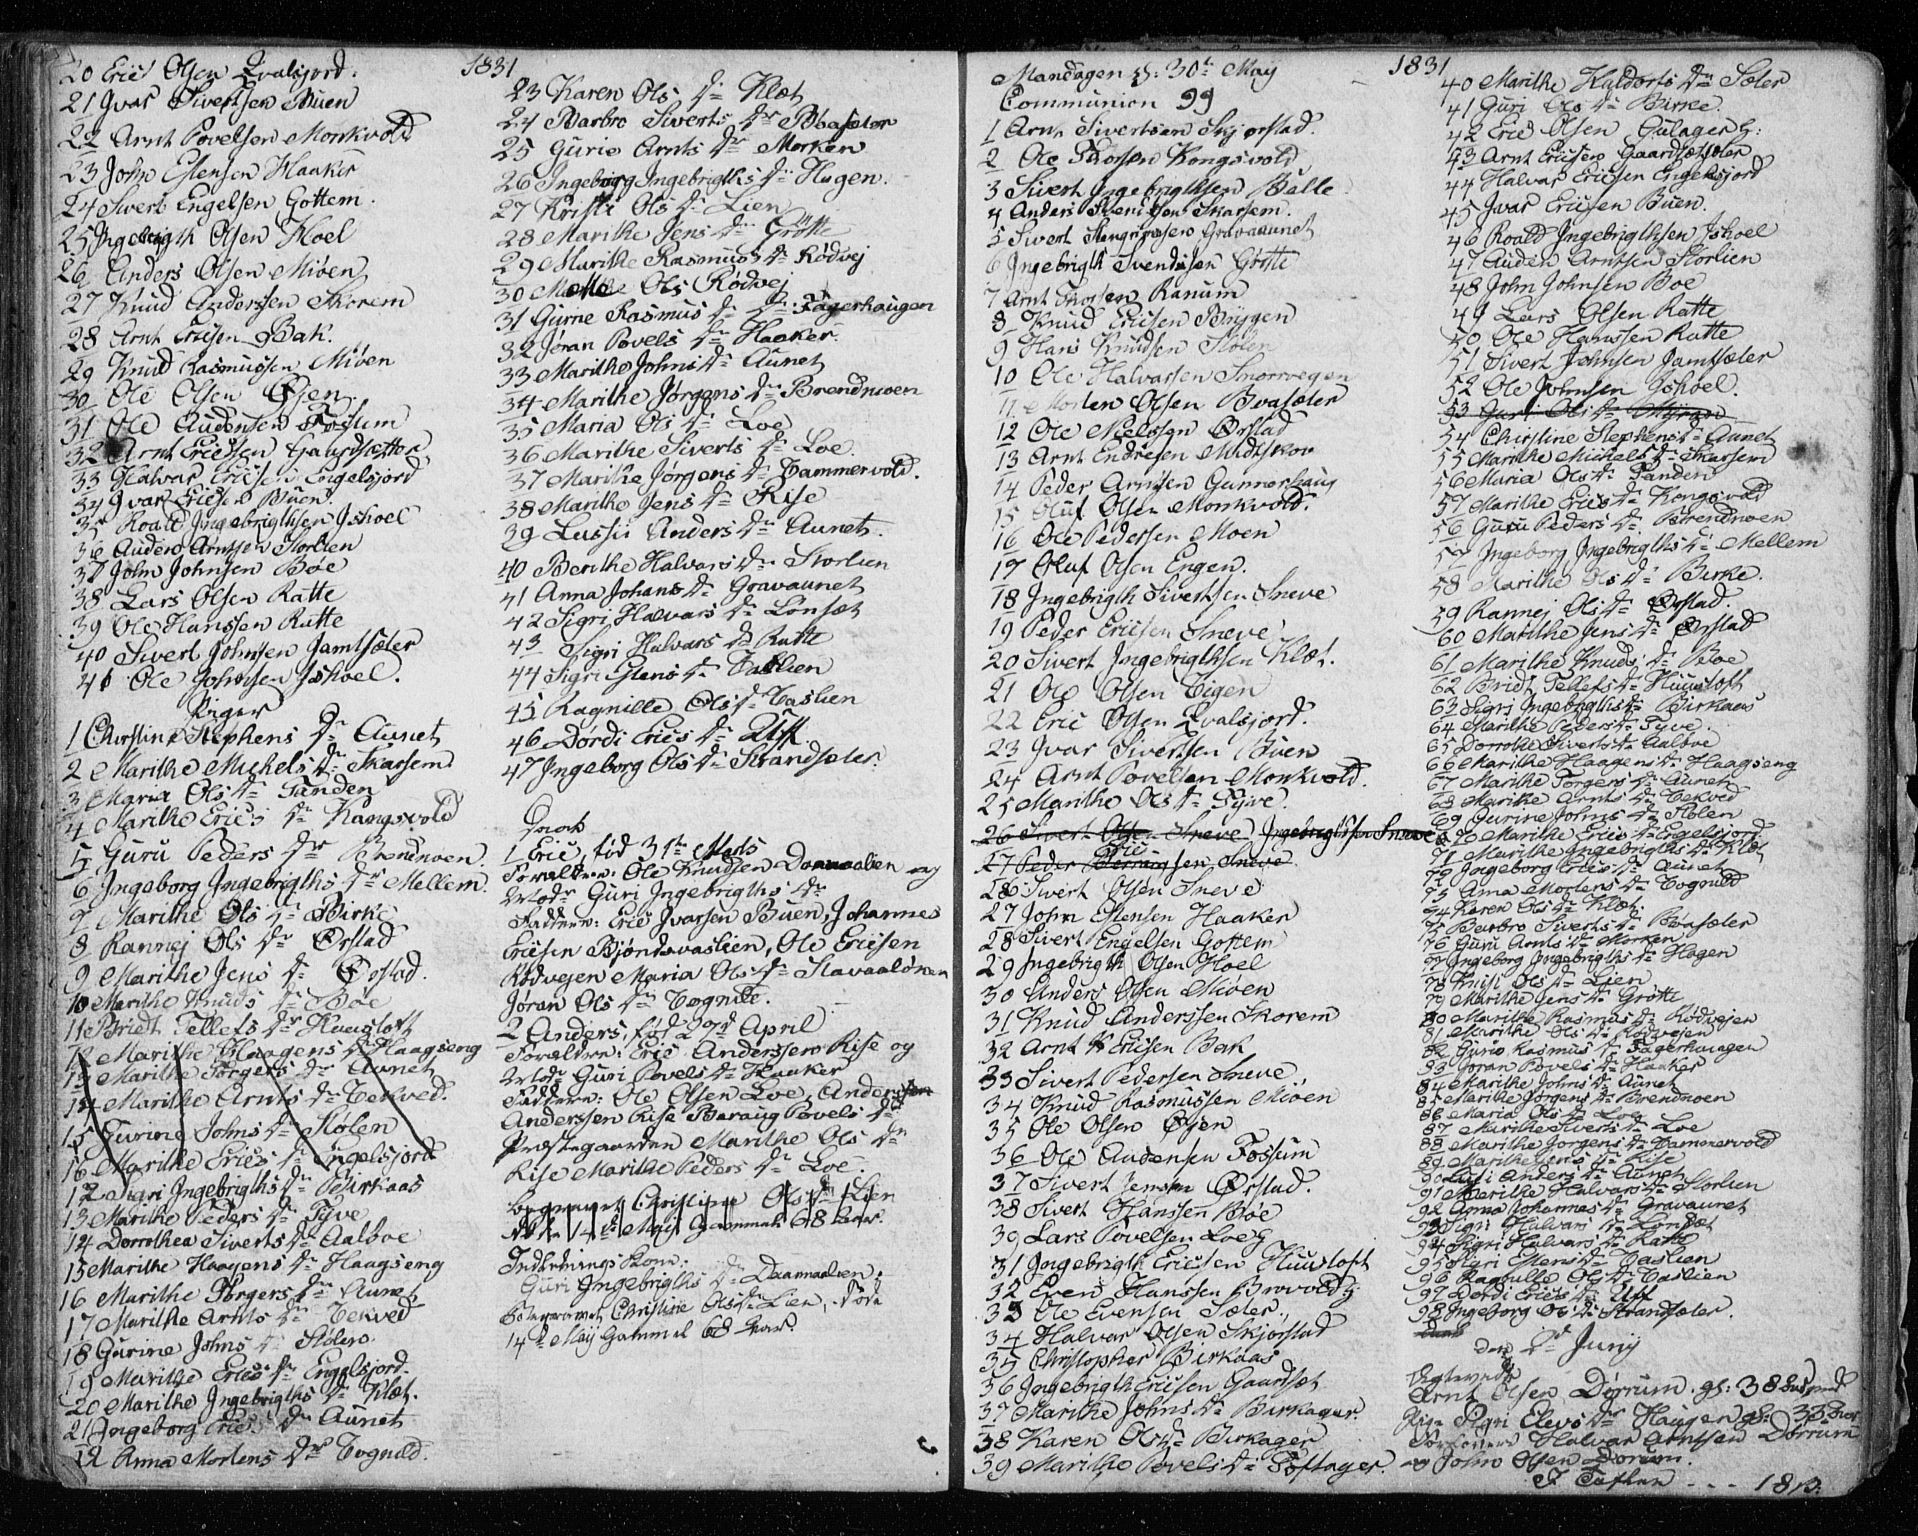 1831
20 Eric Olsen Qvalsjord.
21 Jvar Sivertsen Buen
22 Arnt Povelsen Monkvold
23 John Estensen Haaker
24 Sivert Engelsen Gottem.
25 Ingebrigth Olsen Hoel
26 Anders Olsen Mioen
27 Knud Anderssen Skorem
28 Arnt Ericsen Bak.
29 Knud Rasmussen Mioen
30 Ole Olsen Øyen.
31 Ole Audensen Fossum
32 Arnt Ericsen Gaardsætter
33 Halvar Ericsen Engelsjord
34 Jvar Ericsen Buen
35 Roald Jngebrigthsen Jshoel
36 Auden Arntsen Storlien
37 John Johnsen Boe
38 Lars Olsen Ratte
39 Ole Hanssen Ratte
40 Sivert Johnsen Jamtsæter
41 Ole Johnsen Jshoel.
Piger
1 Christine Stephens Dr Aunet
2 Marithe Michels Dr Skarsem
3 Maria Ols Dr Tanden
4 Marithe Erics Dr Kongsvold
5 Guru Peders Dr Brendmoen
6 Jngeborg Jngebrigths Dr Mellem
7 Marithe Ols Dr Birke
8 Rannej Ols Dr Ørstad
9 Marithe Jens Dr Ørstad.
10 Marithe Knuds Dr Boe
11 Bridt Tellefs Dr Huusloft
12 Marithe Haagens Dr Haagseng
13 Marithe Torgers Dr Aunet
14 Marithe Arnts Dr Tekved.
15 Gurine Johns Dr Stolen
16 Marithe Erics Dr Engelsjord
12 Sigri Jngebrigths Dr Birkaas
13 Marithe Peders Dr Tyve
14 Dorrothea Siverts Dr Aalboe
15 Marithe Haagens Dr Haagseng
16 Marithe Torgers Dr Aunet
17 Marithe Arnts Dr Tekved
18 Gurine Johns Dr Stolen
19 Marithe Erics Dr Engelsjord.
20 Marithe Jngebrigths Dr Klæt.
21 Jngeborg Erics Dr Aunet
22 Anna Mortens Dr Vognild.
23 Karen Ols Dr Klæt
24 Barbro Siverts Dr Bøasæter
25 Gurie Arnts Dr Morken
26 Ingeborg Ingebrigths Dr Hagen.
27 Kristi Ols Dr Lien
28 Marithe Jens Dr Grøtte
29 Marithe Rasmus Dr Rødvej
30 Ols Rødvej
31 Gurne Rasmus Dr Fagerhaugen
32 Jøran Povels Dr Haaker.
33 Marithe Johns Dr Aunet
34 Marithe Jørgens Dr Brendmoen
35 Maria Ols Dr Loe
36 Marithe Siverts Dr Loe.
37 Marithe Jørgens Dr Vammervold.
38 Marithe Jens Dr Rise
39 Lussi Anders Dr Aunet.
40 Berithe Halvars Dr Storlien
41 Anna Johans Dr Gravaunet
42 Sigri Halvars Dr Lønset
43 Sigri Halvars Dr Ratte
44 Sigri Estens Dr Vaslien
45 Ragnille Ols Dr Vaslien
46 Dordi Erics Dr Uff
47 Jngeborg Ols Dr Strandsæter.
1 Eric, fød 31te Marts
Foreldre: Ole Knudsen Donaalien og
Mod. Guri Jngebrigths Dr
Faddere: Eric Jvarsen Buen, Johannes
Ericsen Bjøndsvaslien, Ole Ericsen
Rødvejen Maria Ols Dr
Jøran Ols Dr Vognild.
2 Anders, fød 22d April
Foreldre: Eric Anderssen Rise og
Mod. Guri Povels Dr Haaker
Faddere: Ole Olsen Loe, Anders
Anderssen Rise Baraug Povels Dr
Præstegaarden Marithe Ols Dr
Rise Marithe Peders Dr Loe.
Begravet Christine Ols Dr Lien
død 14de Maij Gammel 68 Aar.
Indlednings Kone:
Guri Jngebrigths Dr Donaalien.
Begravet Christine Ols Dr Lien, døde
14de Maij Gammel 68 Aar.
1831
Mandagen d: 30te May
Communion 99
1 Arnt Sivertsen Skjørstad.
2 Ole Thorsen Kongsvold
3 Sivert Jngebrigthsen Balle
4 Anders Svendsen Skarsem.
5 Sivert Stengrimsen Gravaunet
6 Jngebrigth Svendsen Grøtte
7 Arnt Thorsen Ranum
8 Knud Ericsen Bryggen
9 Hans Knudsen Stølen
10 Ole Halvarsen Snorrvegen
11 Morten Olsen Bvasæter
12 Ole Nielssen Ørstad
13 Arnt Endresen Midtskov
14 Peder Arntsen Gunnerhaug
15 Oluf Olsen Monkvold.
16 Ole Pedersen Moen
17 Oluf Olsen Engen.
18 Jngebrigth Sivertsen Sneve
19 Peder Ericsen Sneve
20 Sivert Jngebrigthsen Klæt.
21 Ole Olsen Vigen
22 Eric Olsen Qvalsjord.
23 Jvar Sivertsen Buen
24 Arnt Povelsen Monkvold.
25 Marithe Ols Dr Tyve.
26 Sivert Olsen Sneve Jngebrigthsen Sneve
27 Peder Ericsen Sneve
26 Sivert Olsen Sneve
27 John Estensen Haaker
28 Sivert Engelsen Gottem
29 Jngebrigth Olsen Hoel
30 Anders Olsen Mioen
31 Knud Anderssen Skorem
32 Arnt Ericsen Bak
33 Sivert Pedersen Sneve
34 Knud Rasmussen Mioen
35 Ole Olsen Øyen
36 Ole Audensen Fossum
37 Sivert Jensen Ørstad.
38 Sivert Hanssen Boe
39 Lars Povelsen Loe
31 Jngebrigth Ericsen Huusloft
32 Even Hanssen
33 Ole Evensen Sæter
34 Halvar Olsen Skjørstad
35 Christopher Birkaas
36 Jngebrigth Ericsen Gaardsæt
37 Marithe Johns Dr Birkager.
38 Karen Ols Dr Birkager
39 Marithe Povels Dr Toftager.
40 Marithe Haldors Dr Sæter
41 Guri Ols Dr Birke
42 Eric Olsen Gulager
43 Arnt Ericsen Gaardsætsæter
44 Halvar Ericsen Engelsjord
45 Jvar Ericsen Buen.
46 Roald Jngebrigthsen Jshoel
47 Auden Arntsen Storlien
48 John Johnsen Boe
49 Lars Olsen Ratte
50 Ole Hanssen Ratte
51 Sivert Johnsen Jamtsæter
52 Ole Johnsen Jshoel.
53 Guri Ols Dr
54 Christine Stephens Dr Aunet
55 Marithe Michels Dr Skarsem
56 Maria Ols Dr Tanden
57 Marithe Erics Dr Kongsvold
56 Guru Peders Dr Brendmoen
57 Jngeborg Jngebrigths Dr Mellem
58 Marithe Ols Dr Birke.
59 Rannej Ols Dr Ørstad.
60 Marithe Jens Dr Ørstad
61 Marithe Knuds Dr Boe
62 Bridt Tellefs Dr Huusloft
63 Sigri Jngebrigths Dr Birkaas
64 Marithe Peders Dr Tyve
65 Dorrothe Siverts Dr Aalboe
66 Marithe Haagens Dr Haagseng
67 Marithe Torgers Dr Aunet
68 Marithe Arnts Dr Tekved
69 Gurine Johns Dr Stolen
70 Marithe Erics Dr Engelsjord
71 Marithe Jngebrigths Dr Klæt
72 Jngeborg Erics Dr Aunet
73 Anna Mortens Dr Vognild
74 Karen Ols Dr Klæt.
75 Barbro Siverts Dr Bøasæter
76 Guri Arnts Dr Morken
77 Jngeborg Jngebrigths Dr Hagen
78 Kristi Ols Dr Lien
79 Marithe Jens Dr Grøtte
80 Marithe Rasmus Dr Rødvejen
81 Marithe Ols Dr Rødvejen
82 Gurie Rasmus Dr Fagerhaugen
83 Jøran Povels Dr Haaker
84 Marithe Johns Dr Aunet
85 Marithe Jørgens Dr Brendmoen
86 Maria Ols Dr Loe
87 Marithe Siverts Dr Loe
88 Marithe Jørgens Dr Vammervold
89 Marithe Jens Dr Rise
90 Lussi Anders Dr Aunet
91 Marithe Halvars Dr Storlien
92 Anna Johannes Dr Gravaunet
93 Sigri Halvars Dr Lønset
94 Sigri Halvars Dr Ratte
95 Sigri Estens Dr Vaslien
96 Ragnille Ols Dr Vaslien
97 Dordi Erics Dr Uff
98 Jngeborg Ols Dr Strandsæter.
den 2d Junij
Egteviede
Arnt Olsen Dørrum. gl: 38
Pige Sigri Elevs Dr Haugen gl: 33 Aar
Forlovere Halvar Arntsen Dørrum
og John Olsen Dørrum.
I Taflen - - - 18